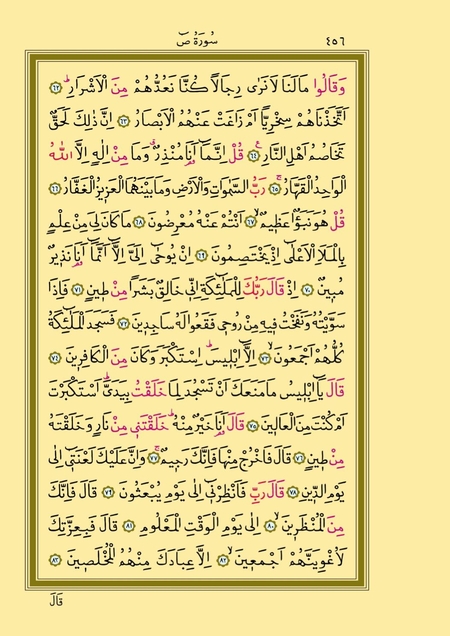 سُورَةُ صٓ ٤٥٦
وَقَالُوا مَالَنَا لَا نَرٰى رِجَالًا كُنَّا نَعُدُّهُمْ مِنَ الْاَشْرَارِۜ ﴿٦٢﴾
اَتَّخَذْنَاهُمْ سِخْرِيًّا اَمْ زَاغَتْ عَنْهُمُ الْاَبْصَارُ ﴿٦٣﴾ اِنَّ ذٰلِكَ لَحَقٌّ
تَخَاصُمُ اَهْلِ النَّارِ۟ ﴿٦٤﴾ قُلْ اِنَّمَٓا اَنَا۬ مُنْذِرٌۗ وَمَا مِنْ اِلٰهٍ اِلَّا اللّٰهُ
الْوَاحِدُ الْقَهَّارُۚ ﴿٦٥﴾ رَبُّ السَّمٰوَاتِ وَالْاَرْضِ وَمَا بَيْنَهُمَا الْعَزِيزُ الْغَفَّارُ ﴿٦٦﴾
قُلْ هُوَ نَبَؤٌا عَظِيمٌۙ ﴿٦٧﴾ اَنْتُمْ عَنْهُ مُعْرِضُونَ ﴿٦٨﴾ مَا كَانَ لِيَ مِنْ عِلْمٍ
بِالْمَلَاِ الْاَعْلٰٓى اِذْ يَخْتَصِمُونَ ﴿٦٩﴾ اِنْ يُوحٰٓى اِلَيَّ اِلَّٓا اَنَّمَٓا اَنَا۬ نَذِيرٌ
مُبِينٌ ﴿٧٠﴾ اِذْ قَالَ رَبُّكَ لِلْمَلٰٓئِكَةِ اِنِّي خَالِقٌ بَشَرًا مِنْ طِينٍ ﴿٧١﴾ فَاِذَا
سَوَّيْتُهُ وَنَفَخْتُ فِيهِ مِنْ رُوحِي فَقَعُوا لَهُ سَاجِدِينَ ﴿٧٢﴾ فَسَجَدَ الْمَلٰٓئِكَةُ
كُلُّهُمْ اَجْمَعُونَۙ ﴿٧٣﴾ اِلَّٓا اِبْلِيسَۜ اِسْتَكْبَرَ وَكَانَ مِنَ الْكَافِرِينَ ﴿٧٤﴾
قَالَ يَٓا اِبْلِيسُ مَا مَنَعَكَ اَنْ تَسْجُدَ لِمَا خَلَقْتُ بِيَدَيَّۜ اَسْتَكْبَرْتَ
اَمْ كُنْتَ مِنَ الْعَالِينَ ﴿٧٥﴾ قَالَ اَنَا۬ خَيْرٌ مِنْهُۜ خَلَقْتَنِي مِنْ نَارٍ وَخَلَقْتَهُ
مِنْ طِينٍ ﴿٧٦﴾ قَالَ فَاخْرُجْ مِنْهَا فَاِنَّكَ رَجِيمٌۚ ﴿٧٧﴾ وَاِنَّ عَلَيْكَ لَعْنَتِٓي اِلٰى
يَوْمِ الدِّينِ ﴿٧٨﴾ قَالَ رَبِّ فَاَنْظِرْنِٓي اِلٰى يَوْمِ يُبْعَثُونَ ﴿٧٩﴾ قَالَ فَاِنَّكَ
مِنَ الْمُنْظَرِينَۙ ﴿٨٠﴾ اِلٰى يَوْمِ الْوَقْتِ الْمَعْلُومِ ﴿٨١﴾ قَالَ فَبِعِزَّتِكَ
لَاُغْوِيَنَّهُمْ اَجْمَعِينَۙ ﴿٨٢﴾ اِلَّا عِبَادَكَ مِنْهُمُ الْمُخْلَصِينَ ﴿٨٣﴾
قَالَ